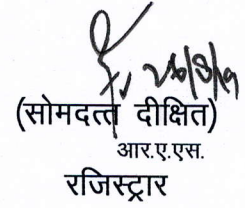 26/8/19
(सोमदत्त दीक्षित)
आर.ए.एस.
रजिस्ट्रार